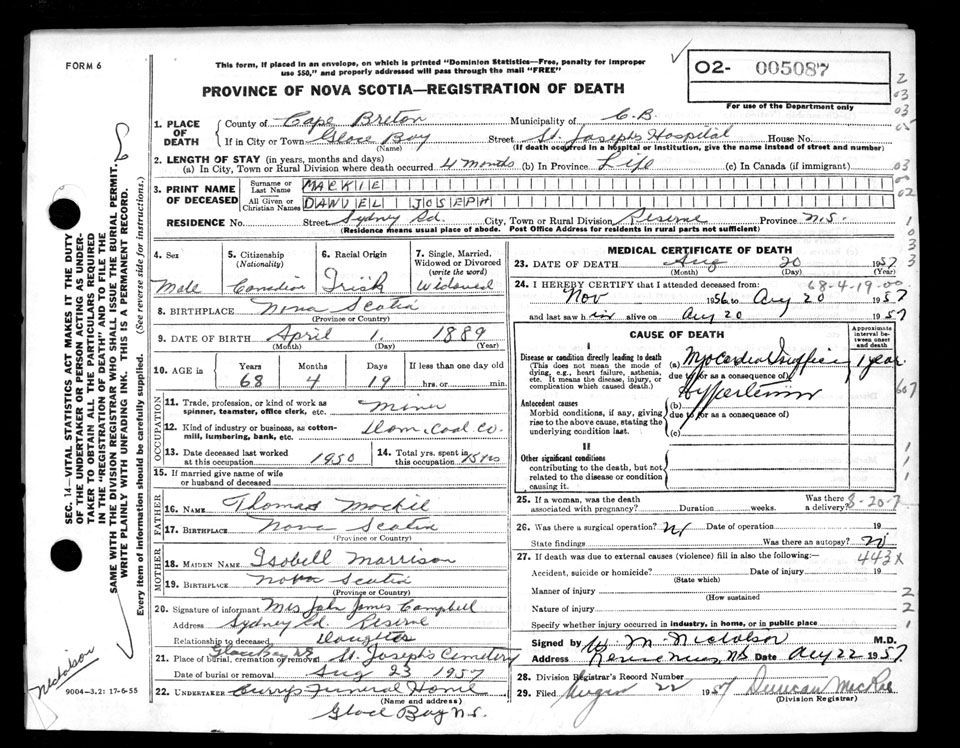 FORM 6
This form, if placed in an envelope, on which is printed "Dominion Statistics—Free, penalty for improper
use $50," and properly addressed will pass through the mail "FREE"
O2- 005087
For use of the Department only
PROVINCE OF NOVA SCOTIA—REGISTRATION OF DEATH
1. PLACE OF DEATH
County of Cape Breton Municipality of C.B.
If in City or Town Glace Bay Street St. Josephs Hospital House No.
(Name) (If death occurred in a hospital or institution, give the name instead of street and number)
2. LENGTH OF STAY (in years, months and days)
(a) In City, Town or Rural Division where death occurred 4 months (b) In Province Life (c) In Canada (if immigrant)
3. PRINT NAME OF DECEASED
Surname or Last Name MACKIE
All Given or Christian Names DANIEL JOSEPH
RESIDENCE No. Street Sydney Rd. City, Town or Rural Division Reserve Province N.S.
(Residence means usual place of abode. Post Office Address for residents in rural parts not sufficient)
4. Sex Male
5. Citizenship (Nationality) Canadian
6. Racial Origin Irish
7. Single, Married, Widowed or Divorced (write the word) Widowed
8. BIRTHPLACE Nova Scotia
(Province or Country)
9. DATE OF BIRTH April 1, 1889
(Month) (Day) (Year)
10. AGE is Years 68 Months 4 Days 19 If less than one day old hrs. or min.
OCCUPATION
11. Trade, profession, or kind of work as spinner, teamster, office clerk, etc. Miner
12. Kind of industry or business, as cotton-mill, lumbering, bank, etc. Dom. Coal Co.
13. Date deceased last worked at this occupation 1950
14. Total yrs. spent in this occupation 15 yrs
15. If married give name of wife or husband of deceased
FATHER
16. NAME Thomas Mackie
17. BIRTHPLACE Nova Scotia
(Province or Country)
MOTHER
18. MAIDEN NAME Isobell Morrison
19. BIRTHPLACE Nova Scotia
(Province or Country)
20. Signature of informant Mrs John James Campbell
Address Sydney Rd Reserve
Relationship to deceased Daughter
Glace Bay NS
21. Place of burial, cremation or removal St. Joseph's Cemetery
Date of burial or removal Aug 23 1957
22. UNDERTAKER Currys Funeral Home
(Name and address)
Glace Bay N.S.
MEDICAL CERTIFICATE OF DEATH
23. DATE OF DEATH Aug 20 1957
(Month) (Day) (Year)
68-4-19-00
24. I HEREBY CERTIFY that I attended deceased from
Nov 1956 to Aug 20 1957
and last saw him alive on Aug 20 1957
CAUSE OF DEATH
Approximate interval between onset and death
I
Disease or condition directly leading to death
(This does not mean the mode of dying, e.g., heart failure, asthenia, etc. It means the disease, injury, or complication which caused death.)
(a) Myocardial 1 year
due to (or as a consequence of)
Hypertension
Antecedent causes
Morbid conditions, if any, giving rise to the above cause, stating the underlying condition last.
(b)
due to (or as a consequence of)
(c)
II
Other significant conditions
contributing to the death, but not related to the disease or condition causing it.
25. If a woman, was the death associated with pregnancy? Duration weeks. Was there a delivery?
8-20-7
26. Was there a surgical operation? Date of operation 19
State findings Was there an autopsy?
27. If death was due to external causes (violence) fill in also the following:—
443X
Accident, suicide or homicide? Date of injury 19
(State which)
Manner of injury
(How sustained)
Nature of injury
Specify whether injury occurred in industry, in home, or in public place
Signed by W. M. Nicholson M.D.
Address Reserve Mines, N.S. Date Aug 22 1957
28. Division Registrar's Record Number
29. Filed August 22 1957 Duncan MacRae
(Division Registrar)
SEC. 14—VITAL STATISTICS ACT MAKES IT THE DUTY
OF THE UNDERTAKER OR PERSON ACTING AS UNDER-
TAKER TO OBTAIN ALL THE PARTICULARS REQUIRED
IN THE "REGISTRATION OF DEATH" AND TO FILE THE
SAME WITH THE DIVISION REGISTRAR WHO SHALL ISSUE THE BURIAL PERMIT.
WRITE PLAINLY WITH UNFADING INK. THIS IS A PERMANENT RECORD.
Every item of information should be carefully supplied. (See reverse side for instructions.)
Nicholson
9004—3.2: 17-6-55
2
03
03
05
03
5
02
1
0
3
3
607
1
1
1
2
2
1